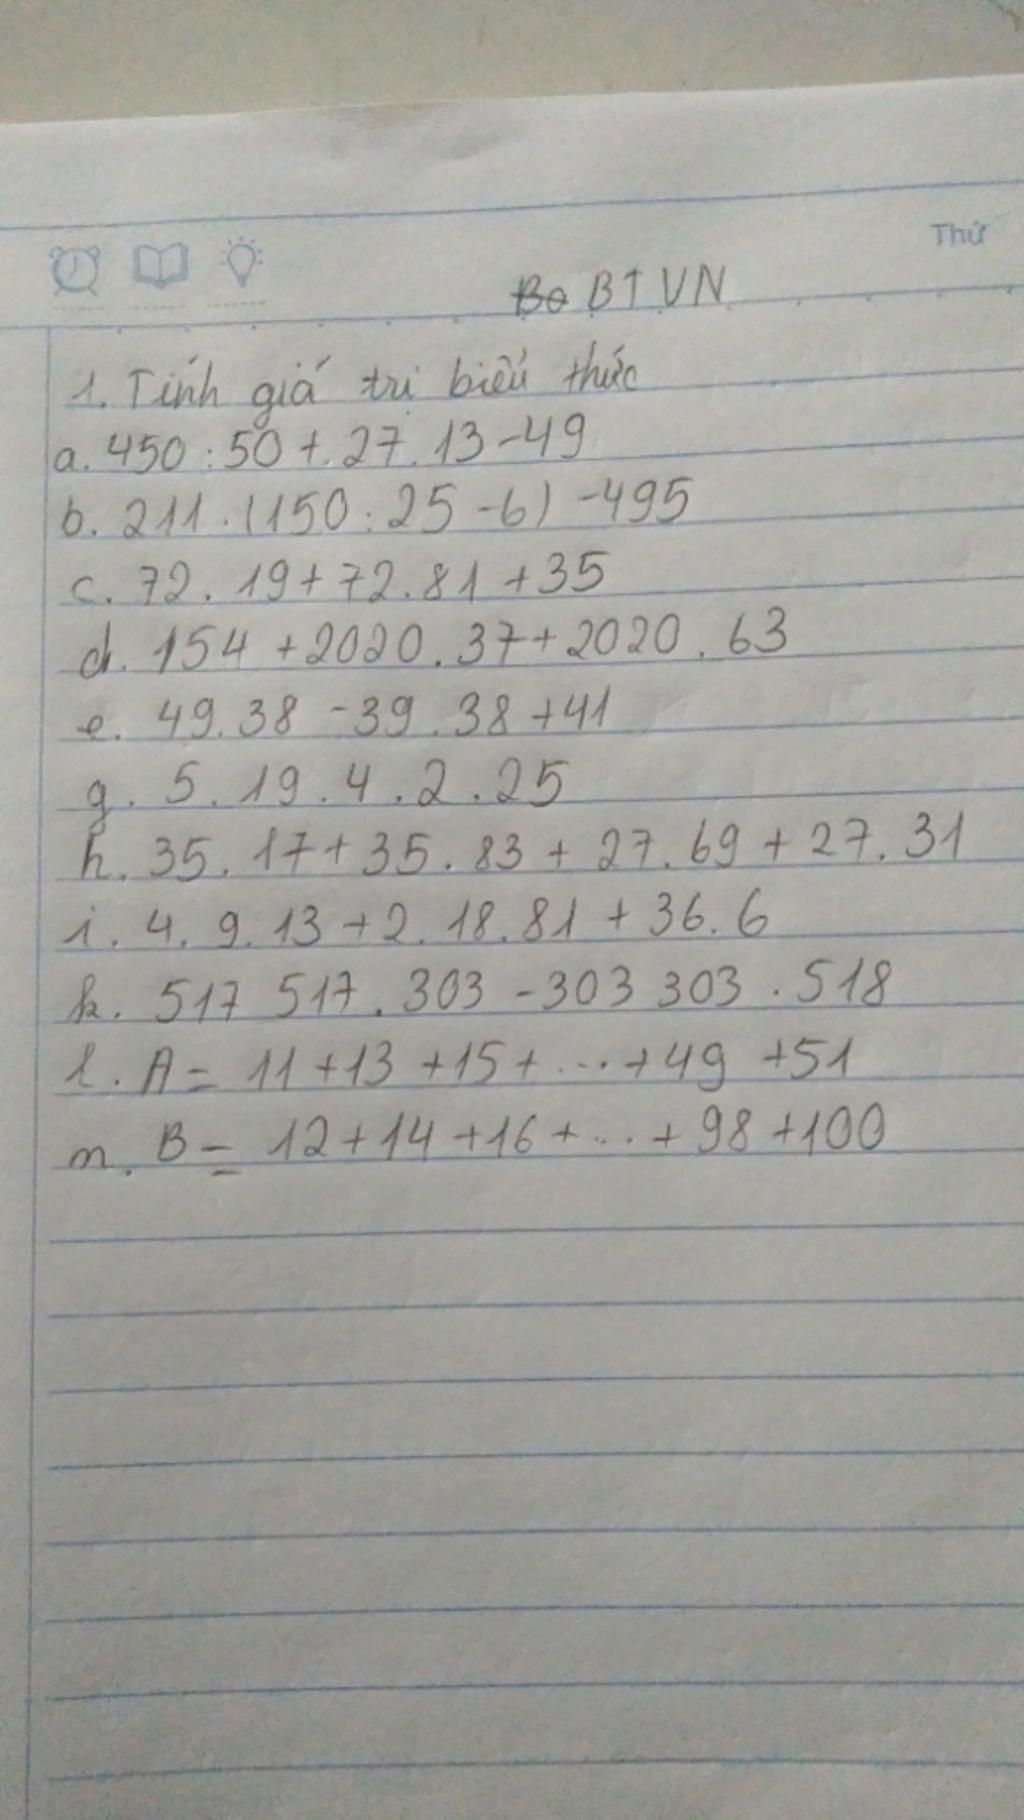 Thứ
BTVN
1. Tính giá trị biểu thức
a. 450 : 50 + 27 . 13 - 49
b. 211 . (150 : 25 - 6) - 495
c. 72 . 19 + 72 . 81 + 35
d. 154 + 2020 . 37 + 2020 . 63
e. 49 . 38 - 39 . 38 + 41
g. 5 . 19 . 4 . 2 . 25
h. 35 . 17 + 35 . 83 + 27 . 69 + 27 . 31
i. 4 . 9 . 13 + 2 . 18 . 81 + 36 . 6
k. 517 517 . 303 - 303 303 . 518
l. A = 11 + 13 + 15 + ... + 49 + 51
m. B = 12 + 14 + 16 + ... + 98 + 100